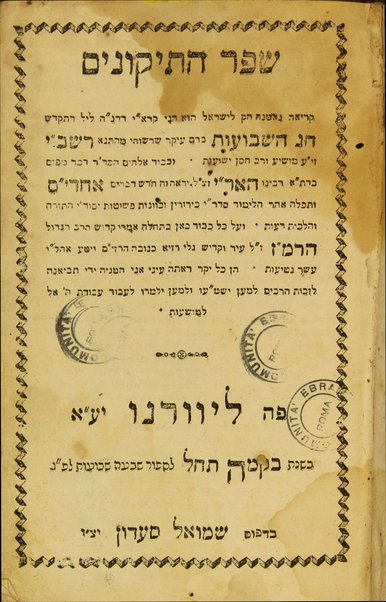 שפר התיקונים
קריאה נאמנה חק לישראל הוא הני קרא"י דרנ"ה ליל התקדש
חג השבועות ברם עיקר שרשוהי מהתנא רשב"י
זי"ע מושיע ורב חסן ישועות · ובכוד אלהים הסד"ר דבר טפים
ברת"א רבינו האר"י זצ"ל יראה זה חדש דברים אחרי"ם
ותפלה אחר הלימוד סדר"י בירורין וכוונות פשוטות יסוד"י התורה
והלכות דעות · ועל כל כבוד כאן בתחלה אמרי קדוש הרב הגדול
הרמ"ז ז"ל עיר וקדיש גלי רזיא כנובה הרזי"ם ויטע אהל"י
עשר נטיעות · הן כל יקר ראתה עיני אני המניה ידי תכיאנה
לזכות הרבים למען ישמ"עו ולמען ילמדו לעבוד עבודת ה' אל
למושעות ·
פה ליוורנו יע"א
בשנת בקמה תחל לספור שבעה שבועות לפ"ג
בדפוס שמואל סעדון יצ"ו
COMUNITA' EBRA
ROMA
COMUNITA' EBRA
ROMA
COMUNITA' EBRA
ROMA